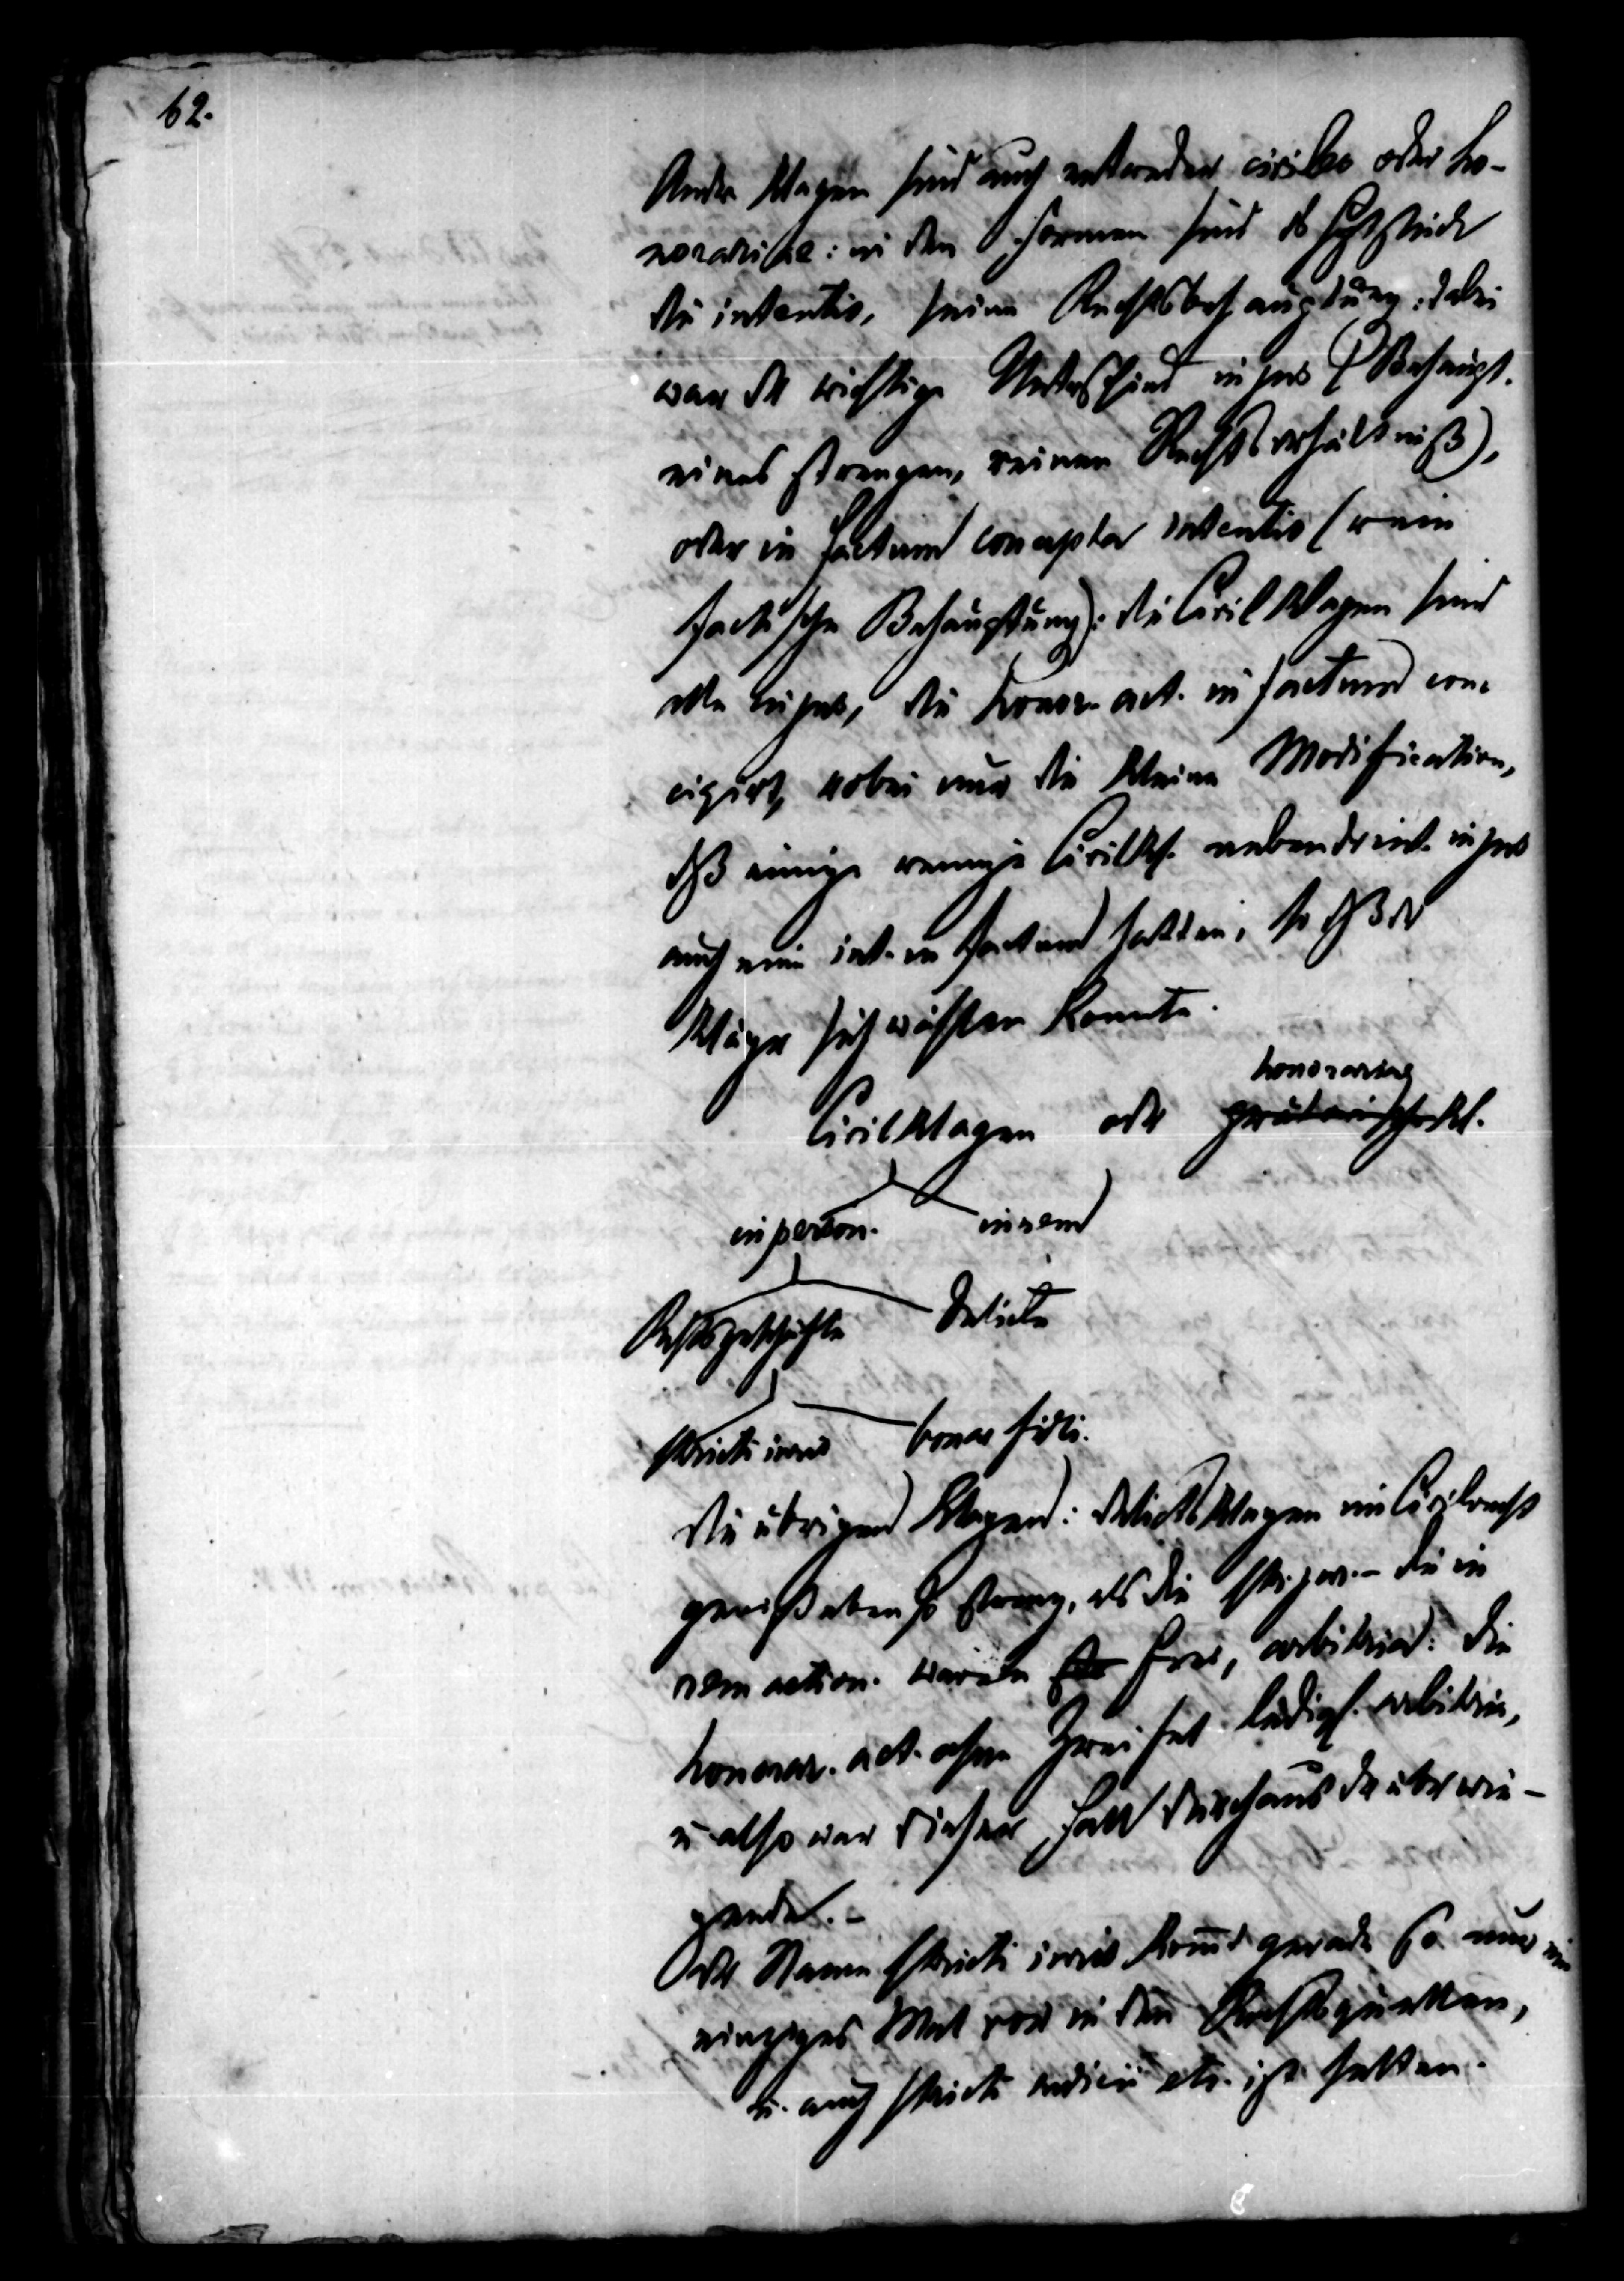 62.
Andre Klagen sind auch entweder civiles oder ho-
norariae: in den Formen sind d Hptstück
die intentio, seine Rechtsbehauptung: dabei
war der wichtige Unterschied in jus (Behaupt.
eines strengen, reinen Rechtsverhältniß),
oder in factum concepta intentio (rein
factische Behauptung): die Civilklagen sind
alle in jus, die honor. act. in factum con-
cipirt, wobei nur die kleine Modification,
dß einige wenige Civilkl. neben d. int. in jus
auch eine int. in factum hatten, so dß der
Kläger sich wählen konnte.
honorarias
Civilklagen oder prätorische Kl.
in person. in rem
Rechtsgeschäfte Delicte
stricti iuris bonae fidei.
die übrigen Klagen: Delictsklagen im Civilrecht
gewiß eben so streng, als die stri. jur. – die in
rem action. waren frei, arbitriae: die
honorar. act. ohne Zweifel ledigl. arbitria,
u. also war dieser Fall durchaus der überwie-
gende. –
Der Name stricti iuris kommt gerade so nur ein
einziges Mal vor in den Rechtsquellen,
u. auch stricti iudicii etc. ist selten.